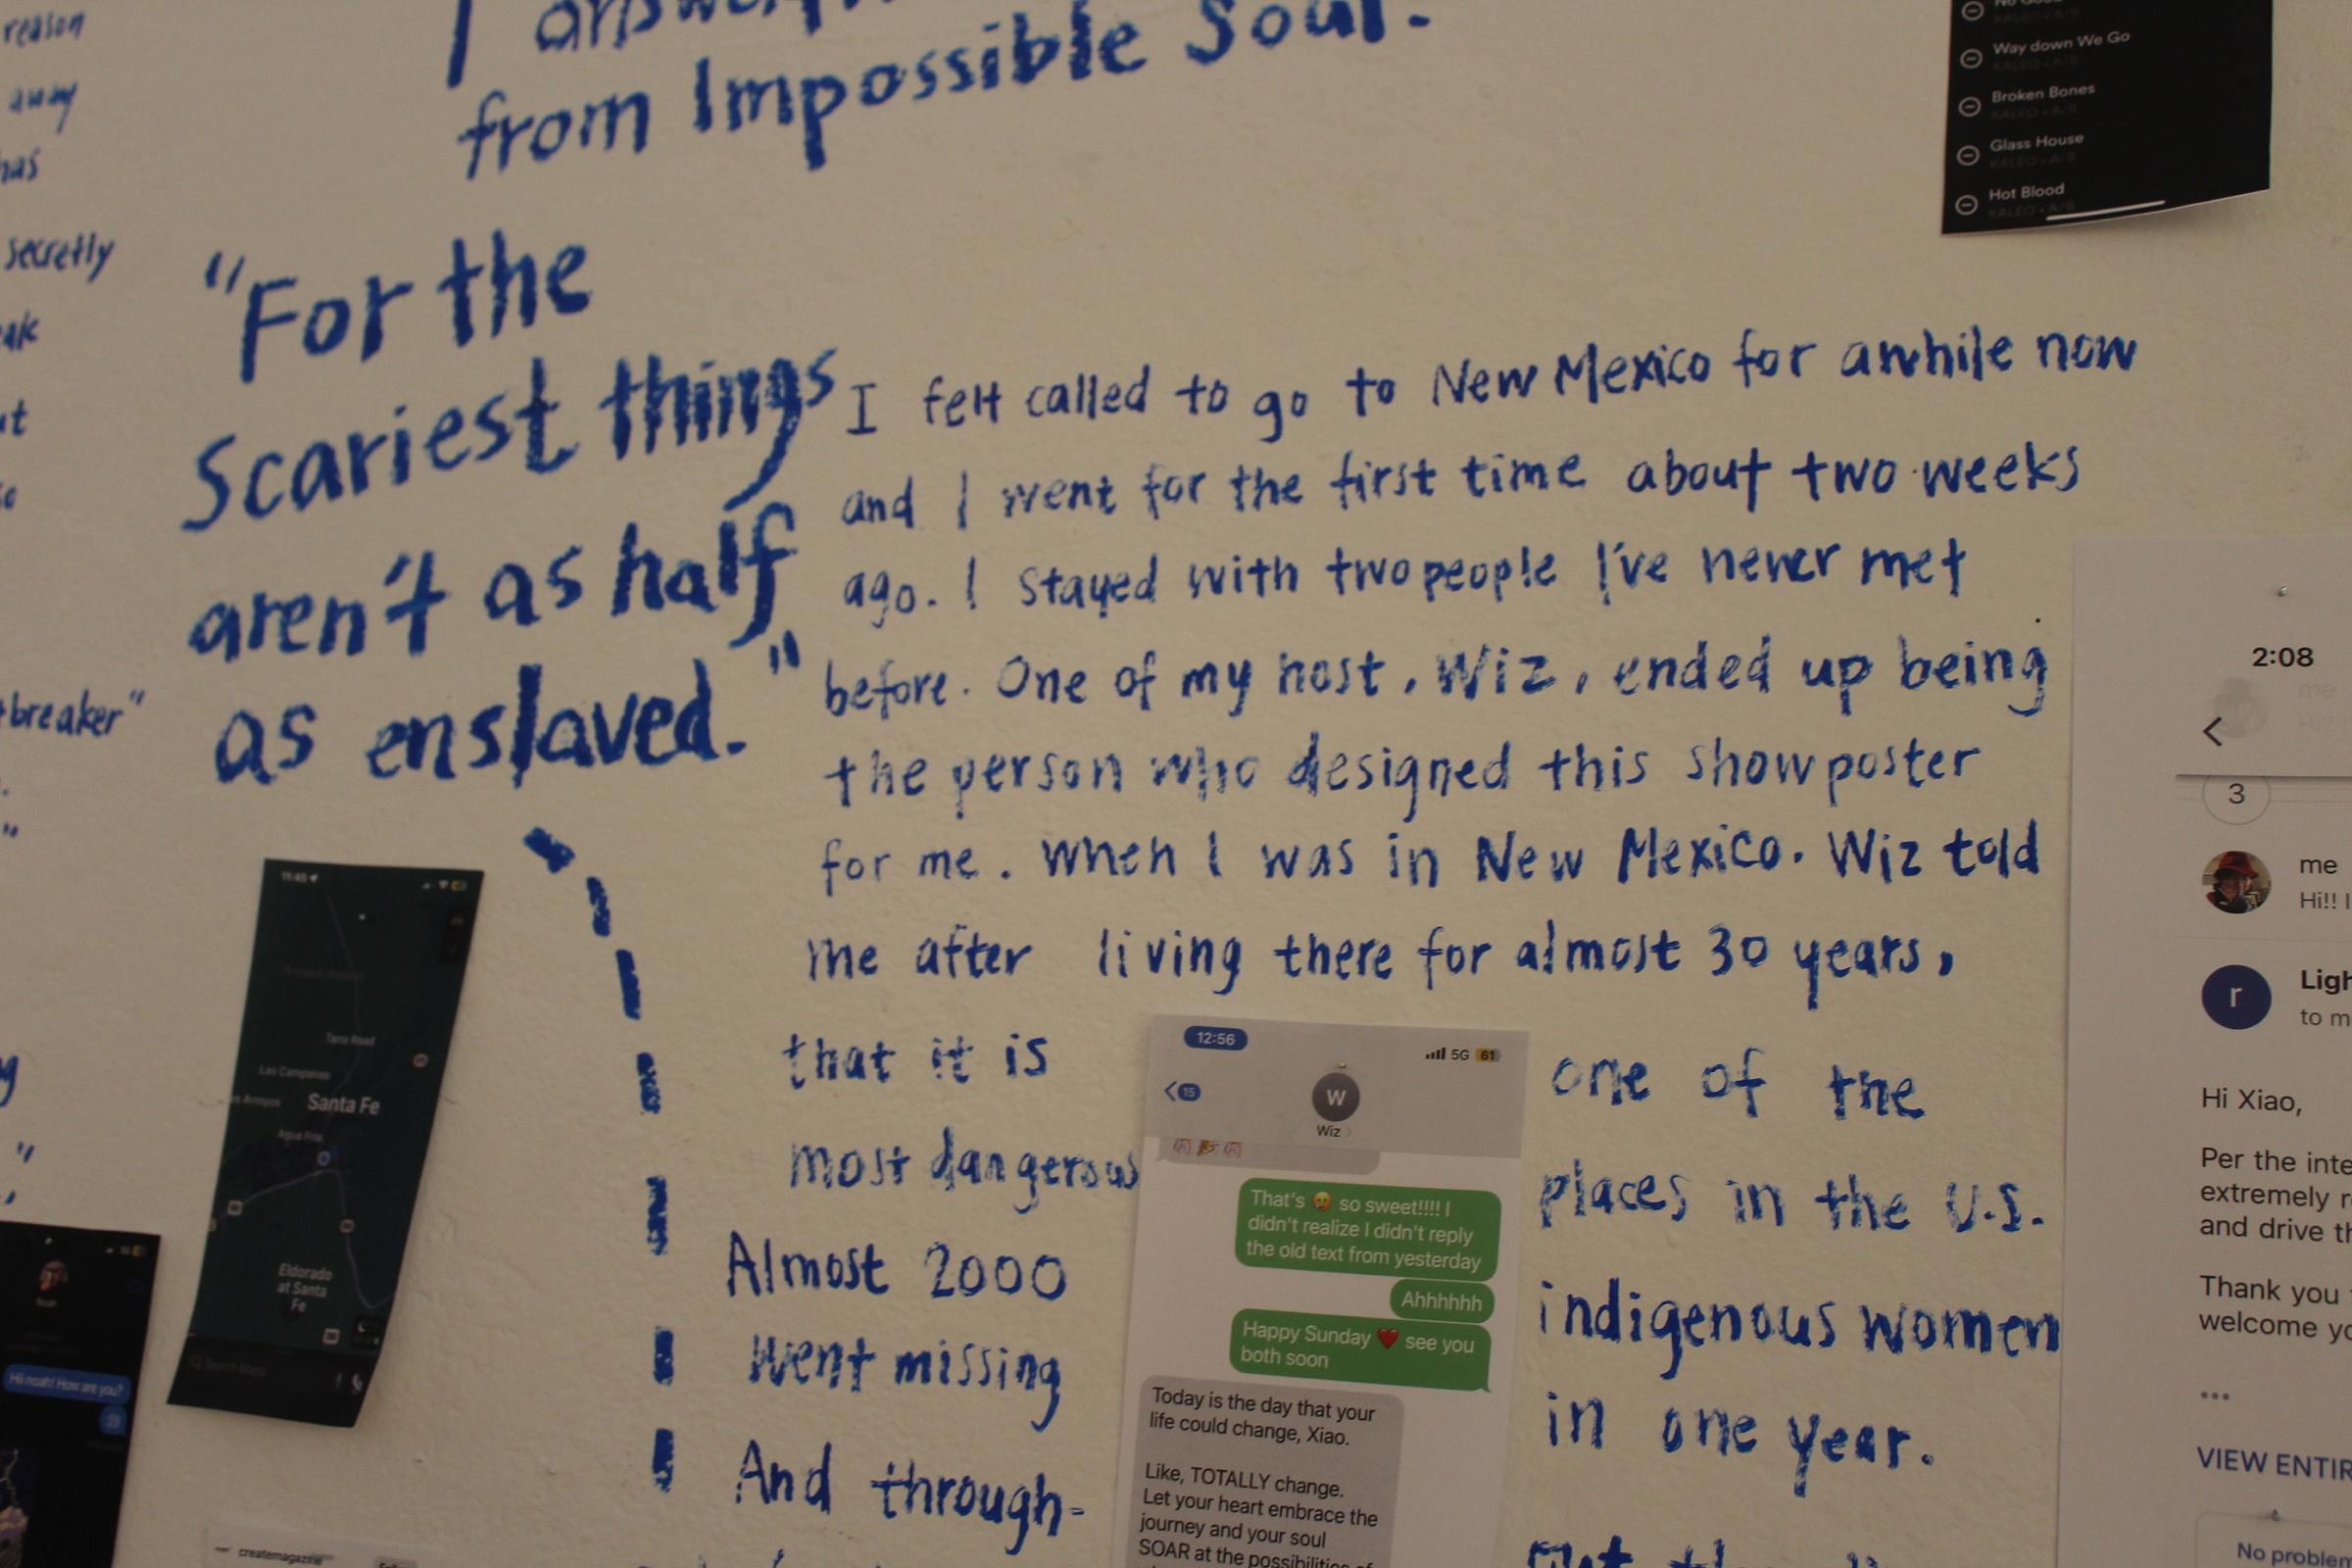 reason
away
has
secretly
breaker"
from Impossible Soul.
"For the
Scariest things
aren't as half
as enslaved."
Way down We Go
KALEO • A/B
Broken Bones
KALEO • A/B
Glass House
KALEO • A/B
Hot Blood
KALEO • A/B
I felt called to go to New Mexico for awhile now
and I went for the first time about two weeks
ago. I stayed with two people I've never met
before. One of my host, Wiz, ended up being
the person who designed this show poster
for me. When I was in New Mexico. Wiz told
me after living there for almost 30 years,
that it is one of the
most dangerous places in the U.S.
Almost 2000 indigenous women
went missing in one year.
And through-
11:45
Tano Road
Las Campanas
Santa Fe
Agua Fria
Eldorado
at Santa
Fe
Search Maps
Hi noah! How are you?
createmagazine
12:56
5G 61
15
W
Wiz
That's 🥹 so sweet!!!! I
didn't realize I didn't reply
the old text from yesterday
Ahhhhhh
Happy Sunday ❤️ see you
both soon
Today is the day that your
life could change, Xiao.
Like, TOTALLY change.
Let your heart embrace the
journey and your soul
SOAR at the possibilities of
2:08
3
me
Hi!! I
r
Ligh
to m
Hi Xiao,
Per the inte
extremely r
and drive th
Thank you
welcome yo
...
VIEW ENTIR
No problem